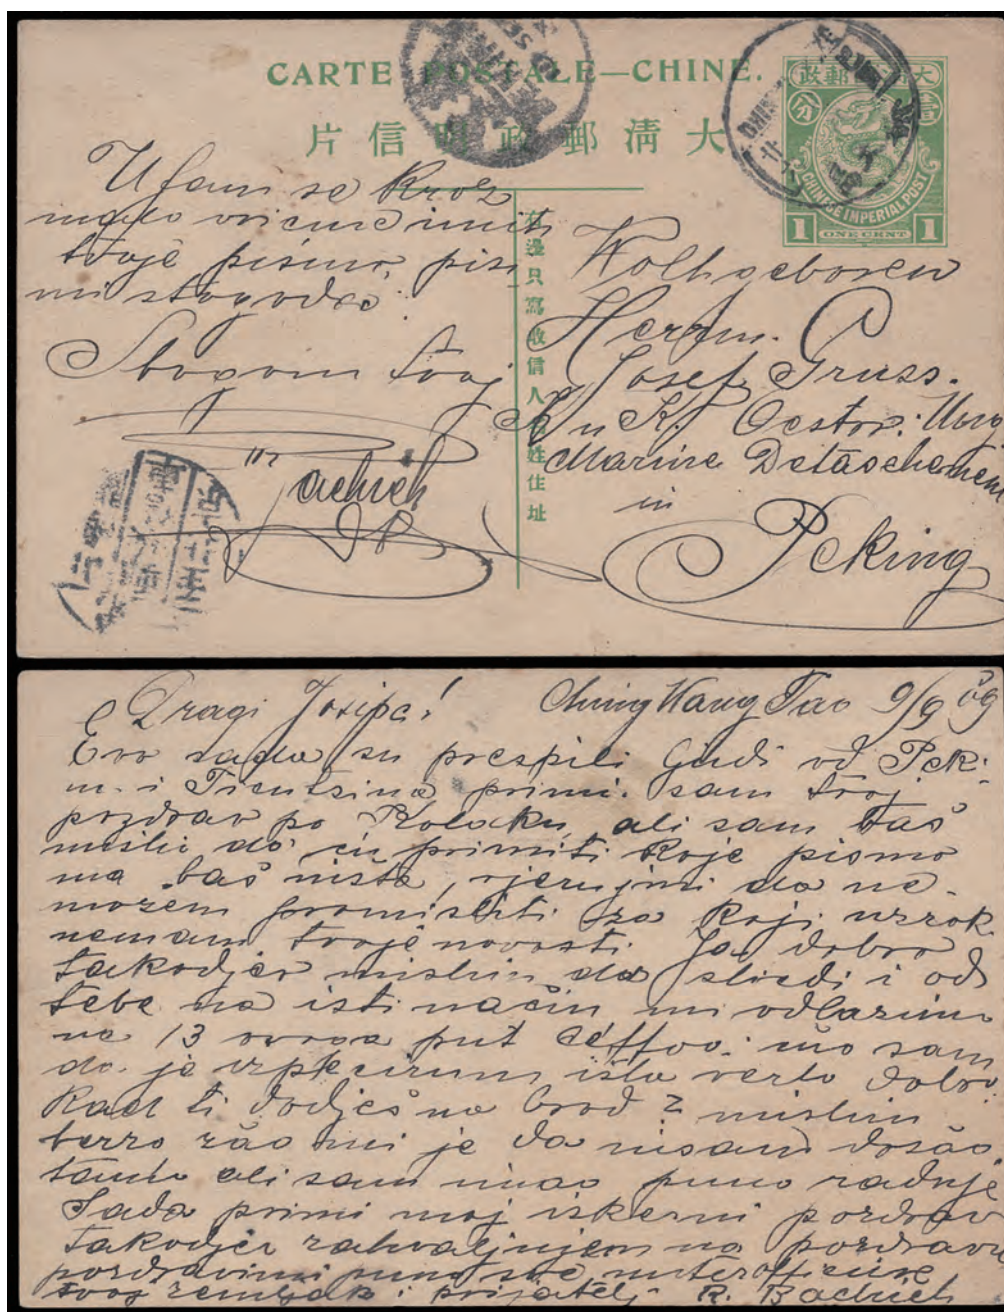 CARTE POSTALE—CHINE.
大清郵政明信片
大清郵政
壹分
CHINESE IMPERIAL POST
1 ONE CENT 1
右邊只寫收信人名姓住址
Ufam se kroz
malo vrieme imiti
tvoje pismo, pisi
mi stogodić
Sbogom tvoj
Bachich
R
Wolhgeboren
Herrn.
Josef Gruss.
K u K. Oestor: Ung
Marine Detaschement
in
Peking
Dragi Josipe! Ching Wang Tao 9/9 09
Evo sada su prespili ljudi od Pek:
i Tientsina primi. sam tvoj
pozdrav po Kolaku, ali sam baš
mislio da ću primiti koje pismo
ma baš ništa, vjerujmi da ne-
mozem promisliti za koji uzrok
nemam tvoje novosti. Ja dobro
takodjer mislim da sliedi i od
tebe na isti način mi odlazimo
na 13 ovoga put
da je isto verlo dobro
Kad ti dodješ na brod? mislim
berzo zao mi je da nisam došao
tamo ali sam imao puno radnje
Sada primi moj iskerni pozdrav
takodjer zahvaljujem na pozdravu
pozdravimi puno sve unteroffizire
tvoj zemljak i prijatelj R. Bachich